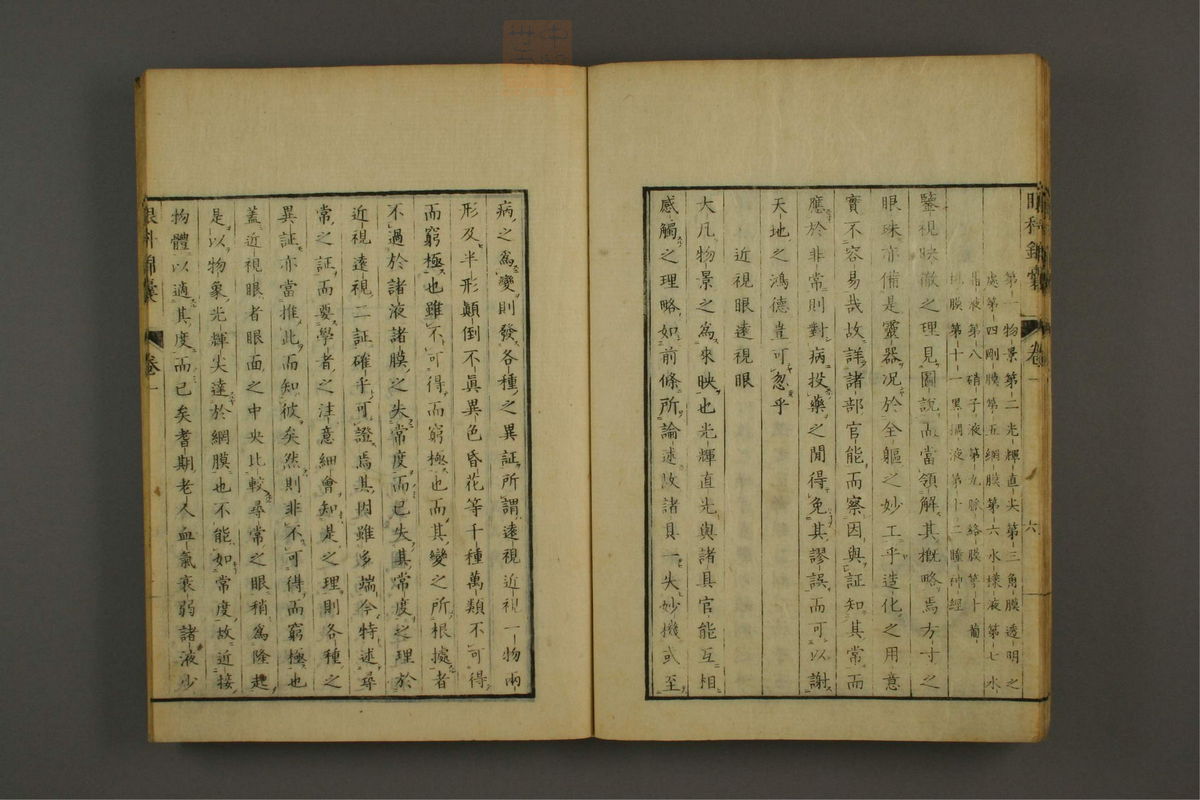 眼科錦囊 卷一 六
第一物景第二光輝直尖第三角膜透明之
處第四剛膜第五網膜第六水樣液第七水
晶液第八硝子液第九脈絡膜第十葡
萄膜第十一黑攔液第十二瞳神經
鑒視映徹之理見圖說而當領解其概略焉方寸之
眼珠亦備是靈器况於全軀之妙工乎造化之用意
實不容易哉故詳諸部官能而察因與証知其常而
應於非常則對病投藥之間得免其謬誤而可以謝
天地之鴻德豈可忽乎
近視眼遠視眼
大凡物景之爲來映也光輝直光與諸具官能互相
感觸之理略如前條所論述故諸具一失妙機或至
病之爲變則發各種之異証所謂遠視近視一物兩
形及半形顛倒不眞異色昏花等千種萬類不可得
而窮極也雖不可得而窮極也而其變之所根據者
不過於諸液諸膜之失常度而已失其常度之理於
近視遠視二証確乎可證焉其因雖多端今特述尋
常之証而要學者之注意細會知是之理則各種之
異証亦當推此而知彼矣然則非不可得而窮極也
蓋近視眼者眼面之中央比較尋常之眼稍爲隆起
是以物象光輝尖達於網膜也不能如常度故近接
物體以適其度而已矣耆期老人血氣衰弱諸液少
眼科錦囊 卷一